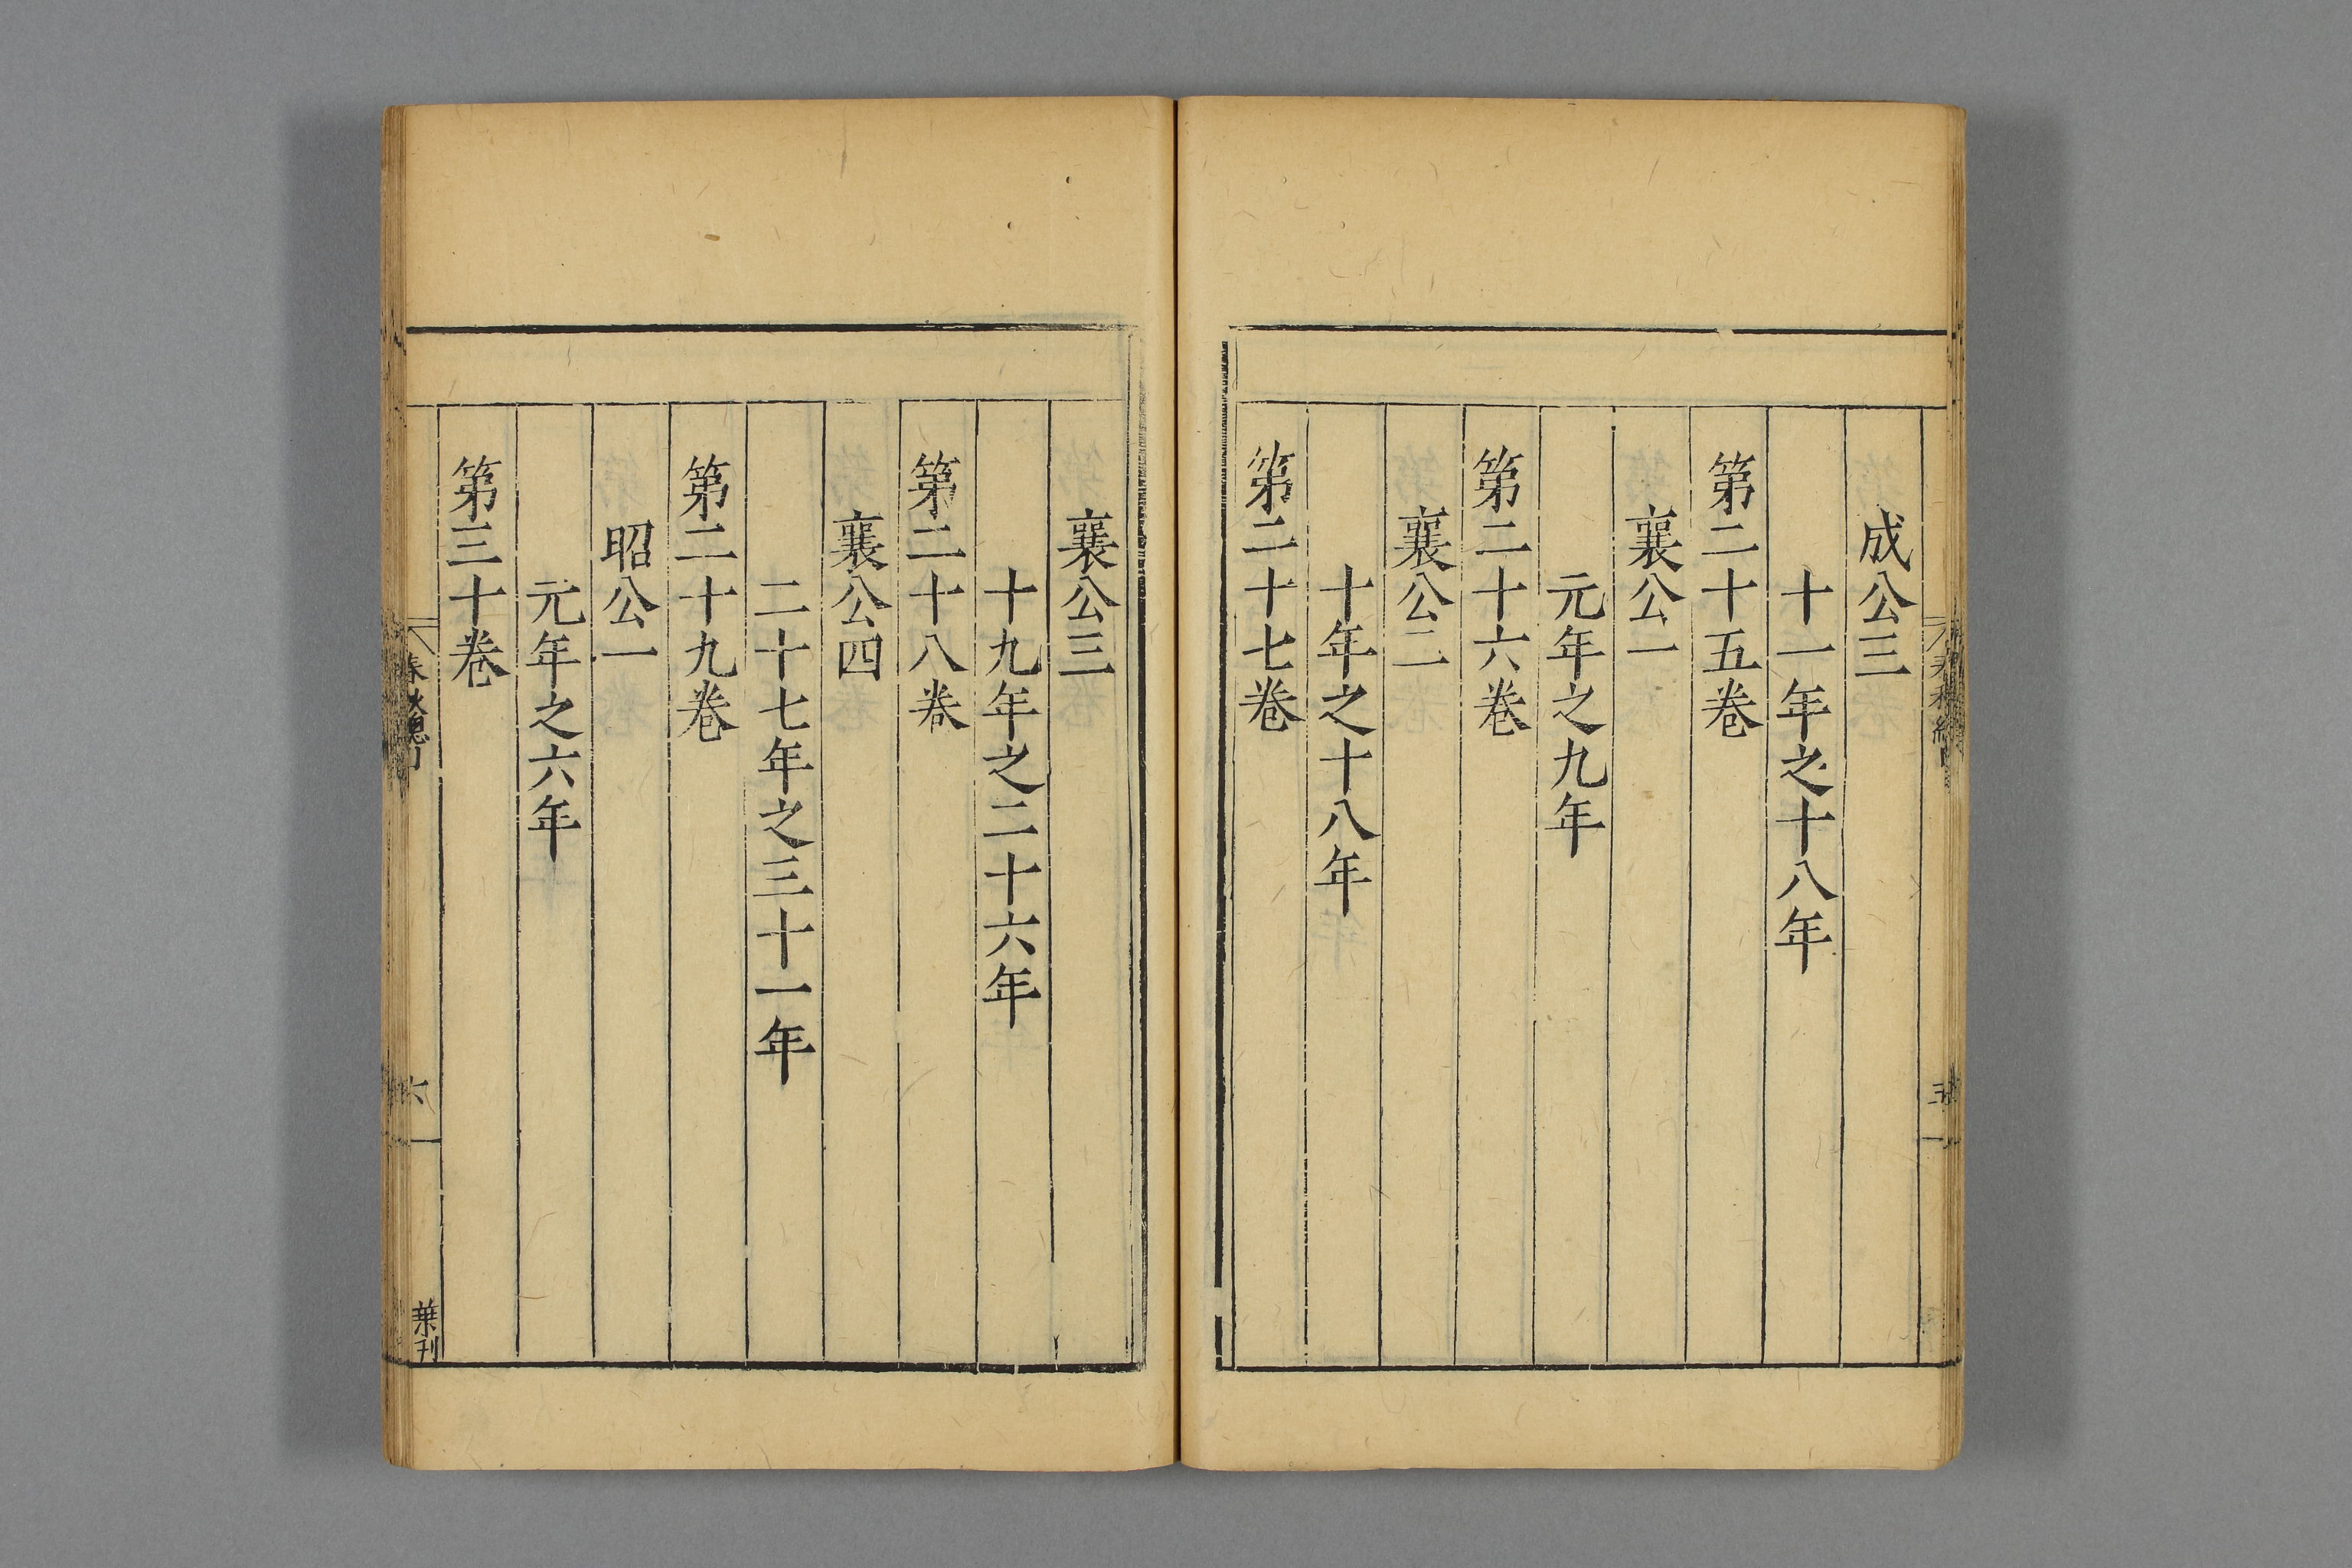 成公三
十一年之十八年
第二十五卷
襄公一
元年之九年
第二十六卷
襄公二
十年之十八年
第二十七卷
襄公三
十九年之二十六年
第二十八卷
襄公四
二十七年之三十一年
第二十九卷
昭公一
元年之六年
第三十卷
春秋總目
六
葉刊